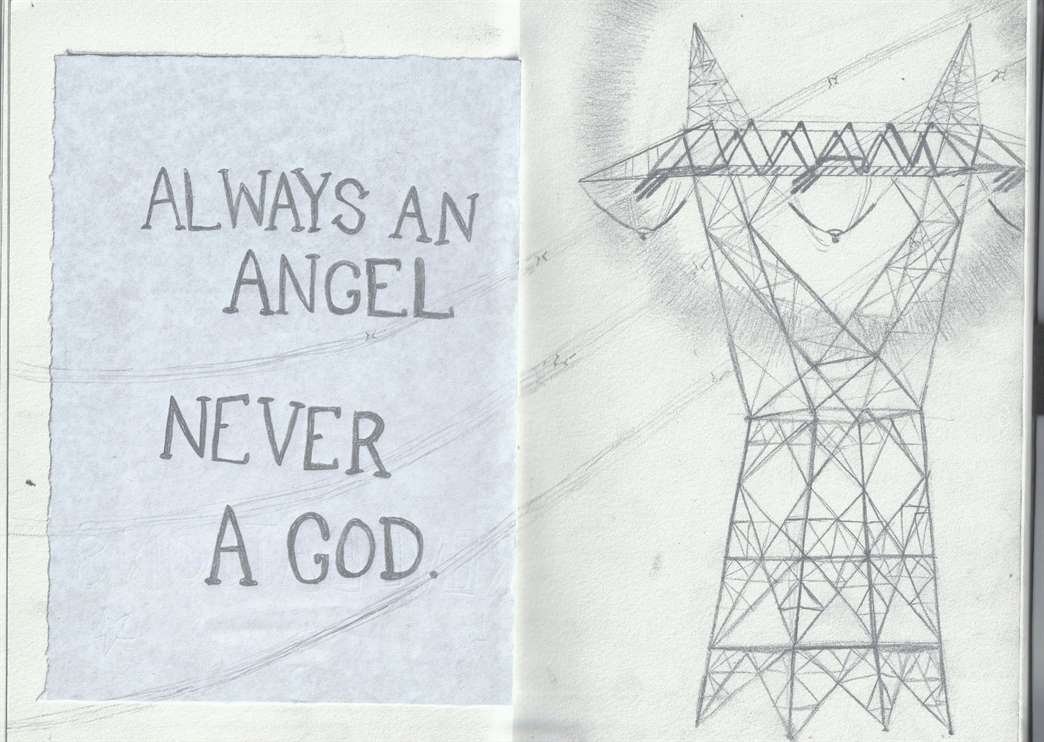 ALWAYS AN
ANGEL
NEVER
A GOD.